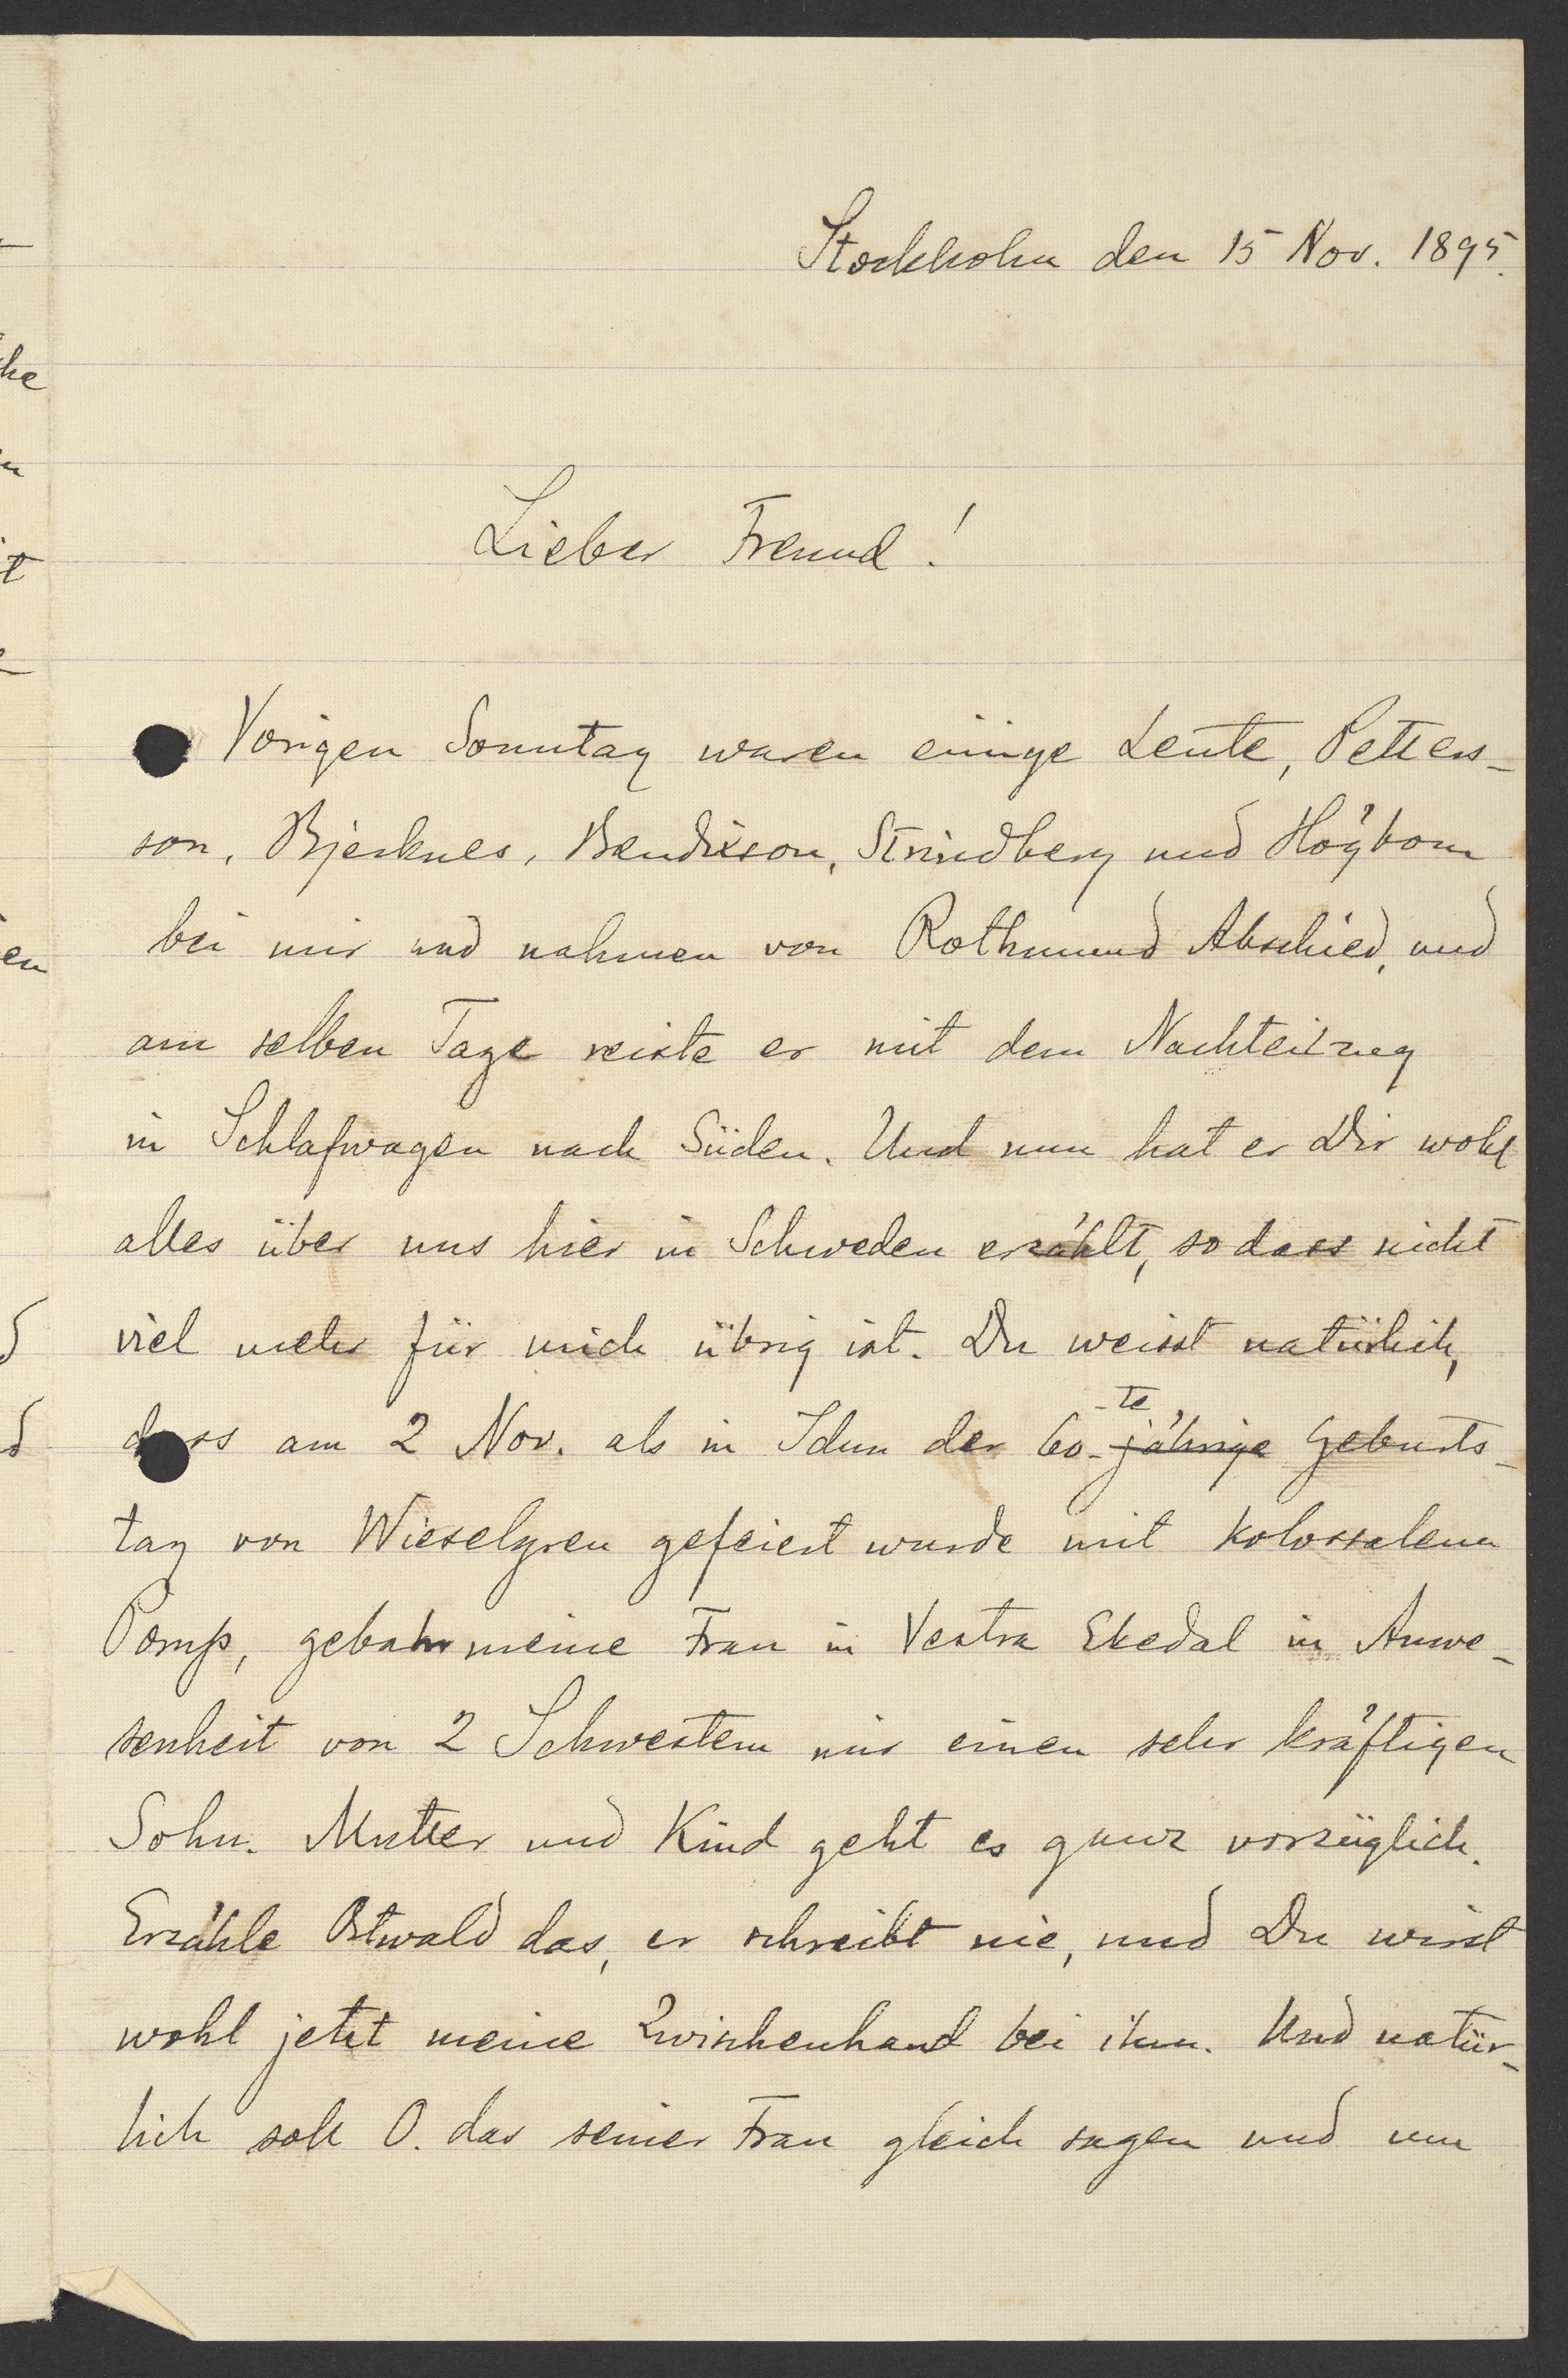 Stockholm den 15 Nov. 1895.
Lieber Freund!
Vorigen Sonntag waren einige Leute, Petters-
son, Bjerknes, Bendixson, Strindberg und Högbom
bei mir und nahmen von Rothmund Abschied, und
am selben Tage reiste er mit dem Nachteilzug
in Schlafwagen nach Süden. Und nun hat er Dir wohl
alles über uns hier in Schweden erzählt, so dass nicht
viel mehr für mich übrig ist. Du weisst natürlich,
dass am 2 Nov. als in Idun der 60-jährige -te Geburts-
tag von Wieselgren gefeiert wurde mit kolossalem
Pomp, gebahr meine Frau in Vestra Ekedal in Anwe-
senheit von 2 Schwestern mir einen sehr kräftigen
Sohn. Mutter und Kind geht es ganz vorzüglich.
Erzähle Ostwald das, er schreibt nie, und Du wirst
wohl jetzt meine Zwischenhand bei ihm. Und natür-
lich soll O. das seiner Frau gleich sagen und um
he
en